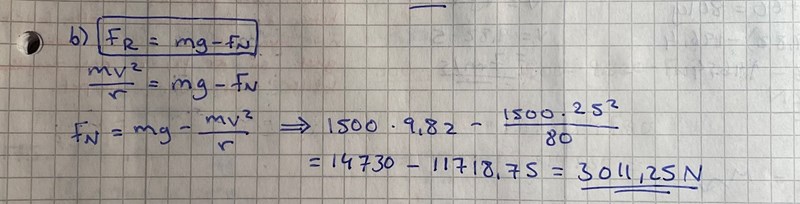 b) F_R = mg - F_N
mv²/r = mg - F_N
F_N = mg - mv²/r ⇒ 1500 · 9,82 - 1500 · 25²/80
= 14730 - 11718,75 = 3011,25 N